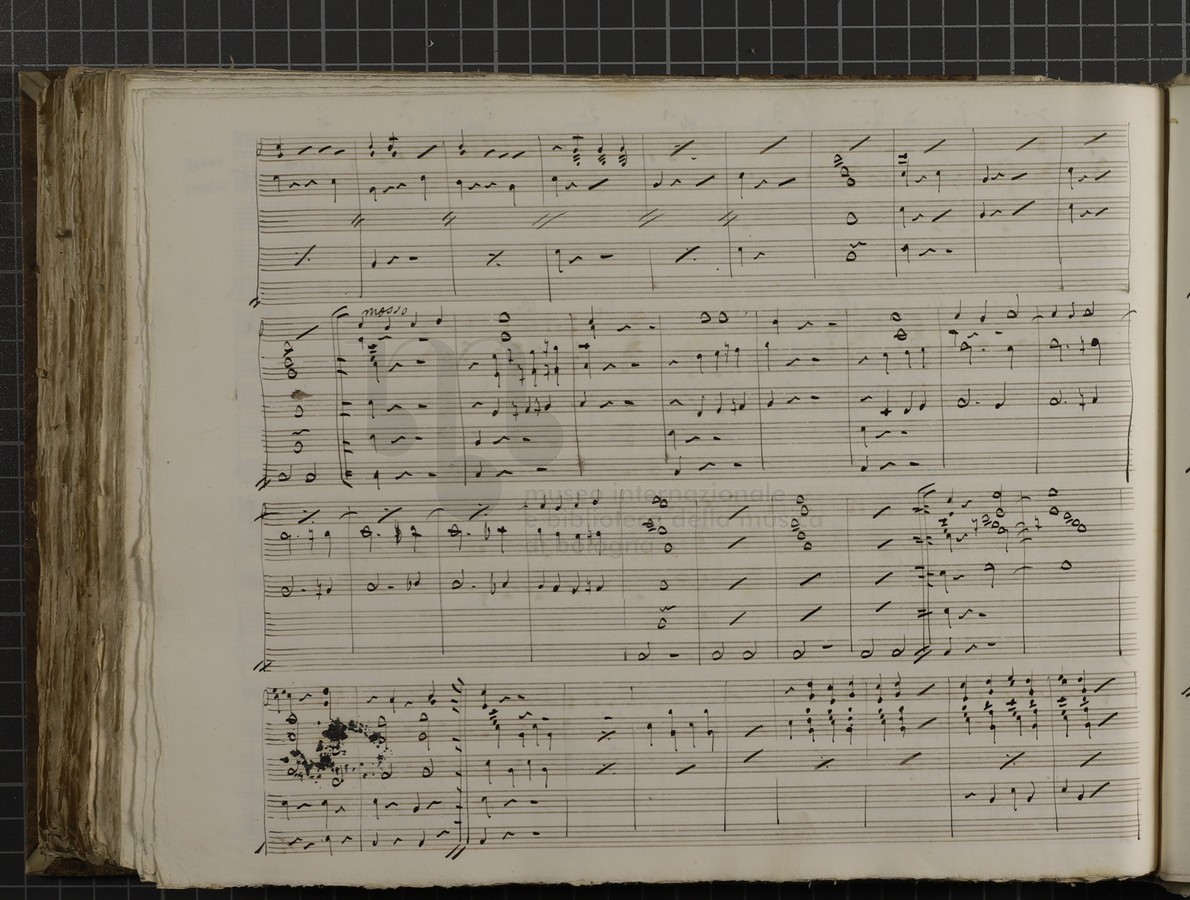 museo internazionale
e biblioteca della musica
di bologna